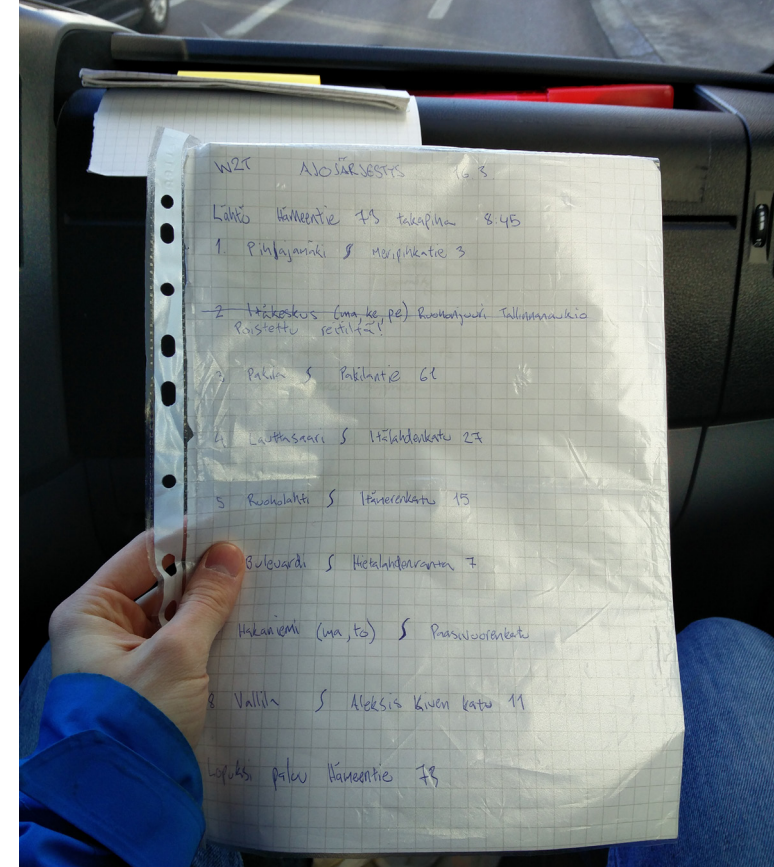 W2T AJOJÄRJESTYS 16.3
Lähtö Hämeentie 73 takapiha 8.45
1. Pihlajamäki § Meripihkatie 3
2 Itäkeskus (ma, ke, pe) Ruohonjuuri Tallinnanaukio
Poistettu reitiltä!
3 Pakila § Pakilantie 61
4 Lauttasaari § Itälahdenkatu 27
5 Ruoholahti § Itämerenkatu 15
Bulevardi § Hietalahdenranta 7
Hakaniemi (ma, to) § Paasivuorenkatu
8 Vallila § Aleksis Kiven katu 11
Lopuksi paluu Hämeentie 73